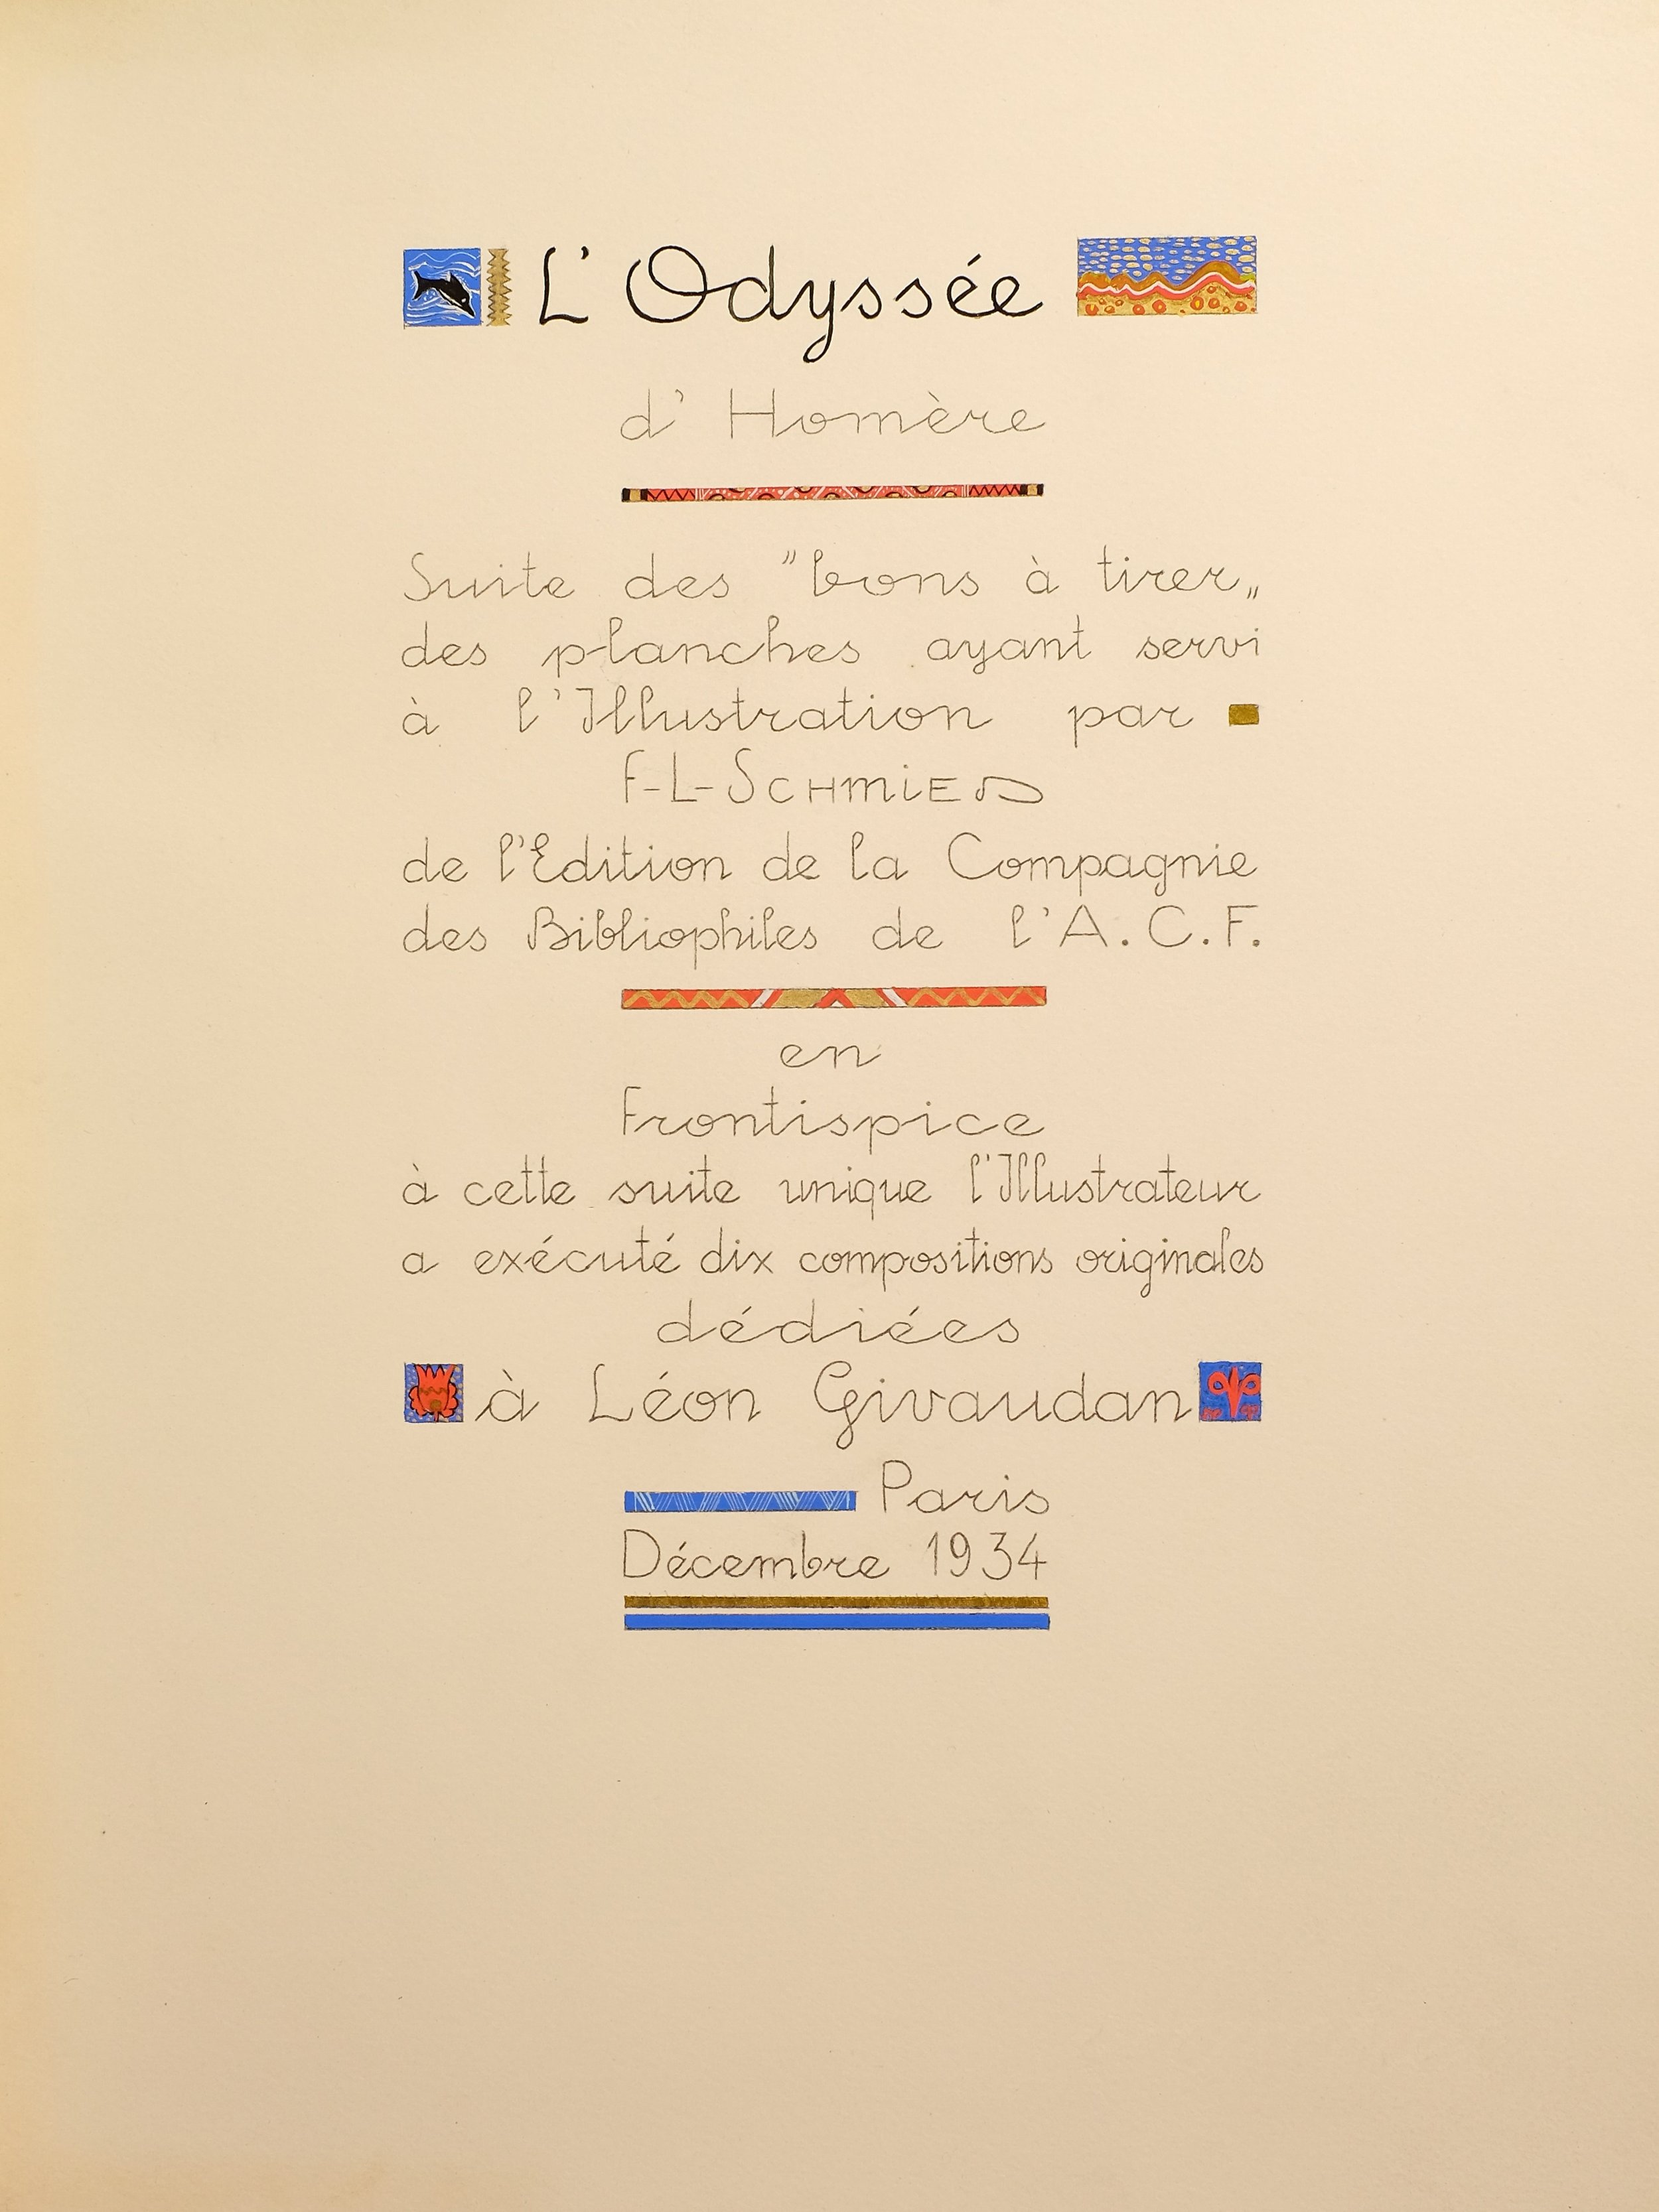 L'Odyssée
d'Homère
Suite des "bons à tirer„
des planches ayant servi
à l'Illustration par
F-L-SCHMIED
de l'Edition de la Compagnie
des Bibliophiles de l'A.C.F.
en
Frontispice
à cette suite unique l'Illustrateur
a exécuté dix compositions originales
dédiées
à Léon Givaudan
Paris
Décembre 1934